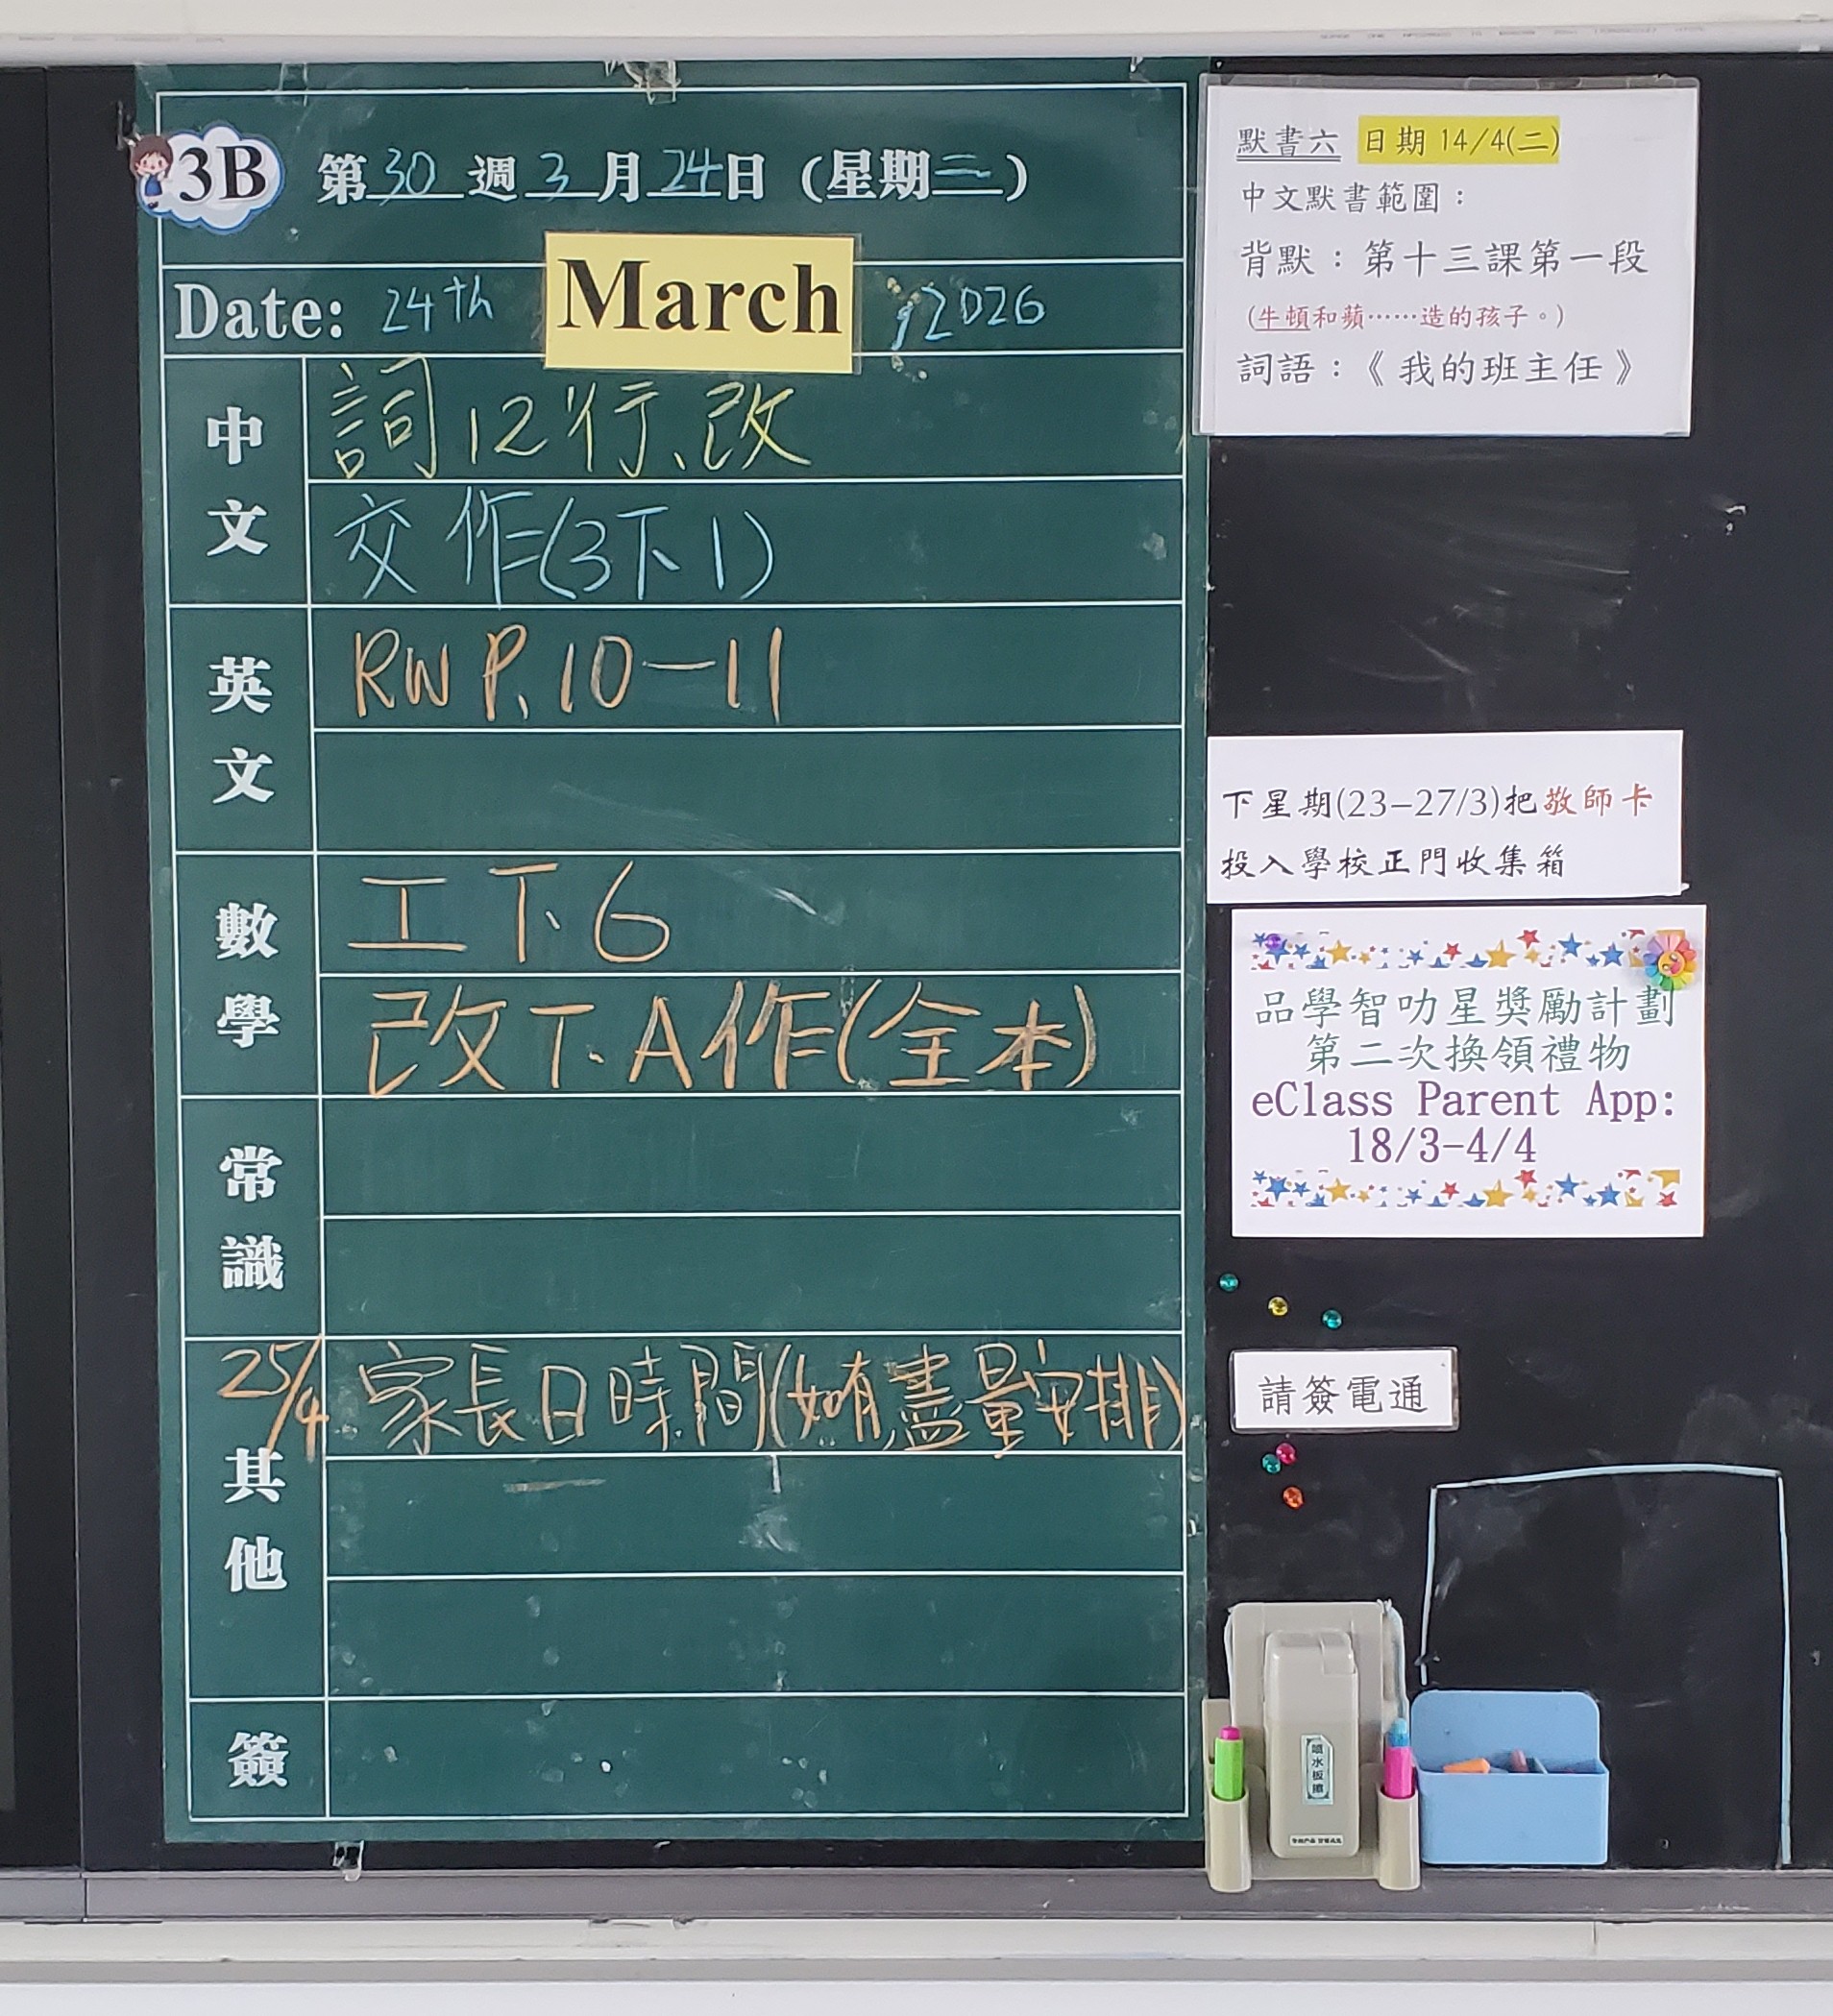 3B 第30週3月24日(星期二)
Date: 24th March, 2026
中文
詞12行、改
交作(3下1)
英文
RW P.10—11
數學
工下、6
改T.A作(全本)
常識
其他
25/4 家長日時間(如有,盡量安排)
簽
默書六 日期14/4(二)
中文默書範圍：
背默：第十三課第一段
(牛頓和蘋……造的孩子。)
詞語：《我的班主任》
下星期(23–27/3)把敬師卡
投入學校正門收集箱
品學智叻星獎勵計劃
第二次換領禮物
eClass Parent App:
18/3-4/4
請簽電通
噴水板擦